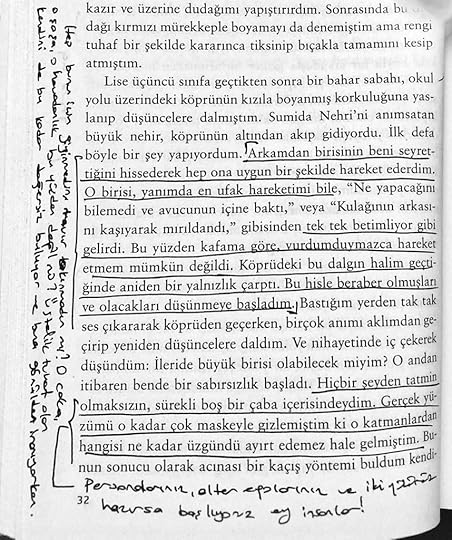 kazır ve üzerine dudağımı yapıştırırdım. Sonrasında bu du-
dağı kırmızı mürekkeple boyamayı da denemiştim ama rengi
tuhaf bir şekilde kararınca tiksinip bıçakla tamamını kesip
atmıştım.
Lise üçüncü sınıfa geçtikten sonra bir bahar sabahı, okul
yolu üzerindeki köprünün kızıla boyanmış korkuluğuna yas-
lanıp düşüncelere dalmıştım. Sumida Nehri'ni anımsatan
büyük nehir, köprünün altından akıp gidiyordu. İlk defa
böyle bir şey yapıyordum. Arkamdan birisinin beni seyret-
tiğini hissederek hep ona uygun bir şekilde hareket ederdim.
O birisi, yanımda en ufak hareketimi bile, “Ne yapacağını
bilemedi ve avucunun içine baktı,” veya “Kulağının arkası-
nı kaşıyarak mırıldandı,” gibisinden tek tek betimliyor gibi
gelirdi. Bu yüzden kafama göre, vurdumduymazca hareket
etmem mümkün değildi. Köprüdeki bu dalgın halim geçti-
ğinde aniden bir yalnızlık çarptı. Bu hisle beraber olmuşları
ve olacakları düşünmeye başladım. Bastığım yerden tak tak
ses çıkararak köprüden geçerken, birçok anımı aklımdan ge-
çirip yeniden düşüncelere daldım. Ve nihayetinde iç çekerek
düşündüm: İleride büyük birisi olabilecek miyim? O andan
itibaren bende bir sabırsızlık başladı. Hiçbir şeyden tatmin
olmaksızın, sürekli boş bir çaba içerisindeydim. Gerçek yü-
zümü o kadar çok maskeyle gizlemiştim ki o katmanlardan
hangisi ne kadar üzgündü ayırt edemez hale gelmiştim. Bu-
nun sonucu olarak acınası bir kaçış yöntemi buldum kendi-
Personalarınız, alter egolarınız ve iki yüzünüz
32
hazırsa başlıyoruz ey insanlar!
Hep bunun için giyinmedin tavır takınmadın mı? O çaba,
o havadarlık bu yüzden değil mi? Üstelik tuhaf olan
kendini de bu kadar değersiz buluyor ve buna gönülden inanıyorken.